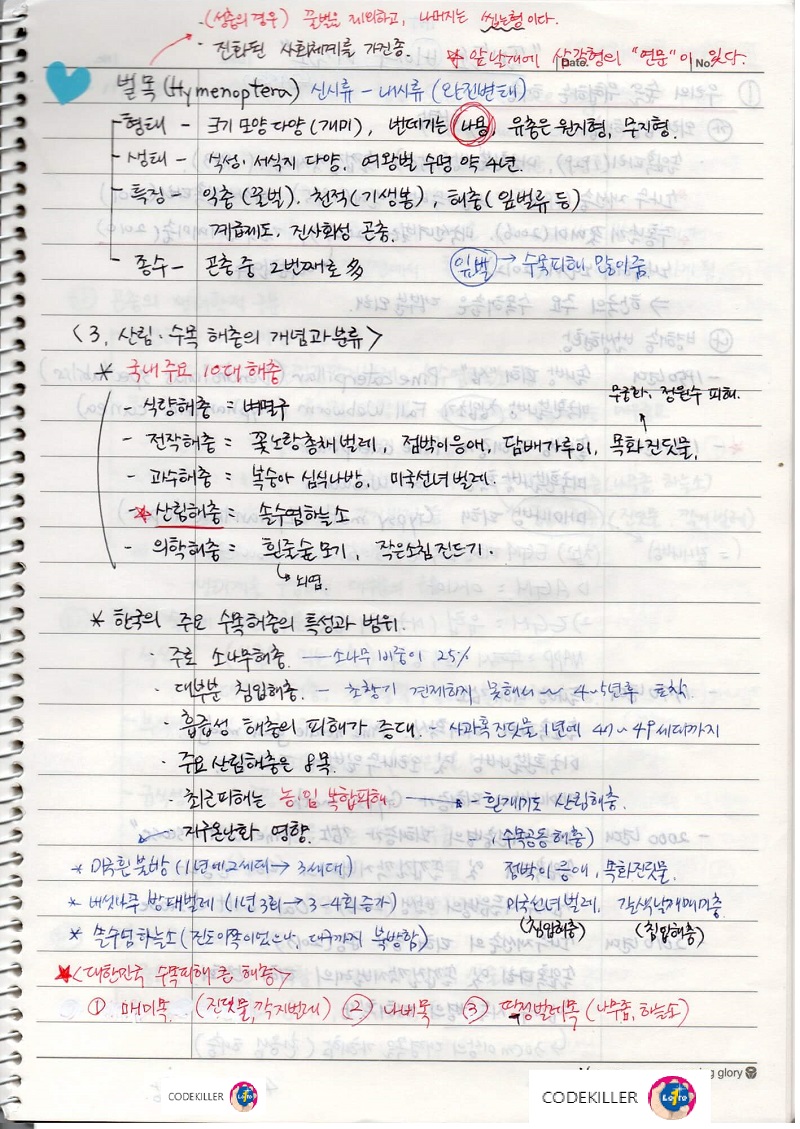 · (성충의경우) 꿀벌은 제외하고, 나머지는 씹는형이다.
· 진화된 사회체계를 가진종.
* 앞날개에 삼각형의 "연문"이 있다.
Date. No.
벌목(Hymenoptera) 신시류 - 내시류 (완전변태)
형태 - 크기 모양 다양(개미), 번데기는 나용, 유충은 원지형, 무지형.
생태 - 식성·서식지 다양. 여왕벌 수명 약 4년.
특징 - 익충(꿀벌), 천적(기생봉), 해충(잎벌류 등)
계층제도, 진사회성 곤충.
종수 - 곤충 중 2번째로 多
잎벌 → 수목피해 많이 줌.
<3. 산림·수목 해충의 개념과 분류>
* 국내 주요 10대 해충
무궁화, 정원수 피해.
- 식량해충 = 벼멸구
- 전작해충 = 꽃노랑총채벌레, 점박이응애, 담배가루이, 목화진딧물,
- 과수해충 = 복숭아 심식나방, 미국선녀벌레.
-* 산림해충 = 솔수염하늘소
- 의학해충 = 흰줄숲모기, 작은소참진드기.
뇌염.
* 한국의 주요 수목해충의 특성과 범위.
· 주로 소나무해충. - 소나무 비중이 25%
· 대부분 침입해충. - 초창기 견제하지 못해서 ~ 4~5년후 토착.
· 흡즙성 해충의 피해가 증대. - 사과혹진딧물, 1년에 47~49세대까지
· 주요 산림해충은 8목.
· 최근피해는 농·임 복합피해 - 흰개미도 산림해충.
· 지구온난화 영향. (수목공동해충)
* 미국흰불나방 (1년에 2세대 → 3세대) 점박이응애, 목화진딧물.
* 버즘나무 방패벌레 (1년 3회 → 3-4회 증가) 미국선녀벌레, 갈색날개매미충.
(침입해충) (침입해충)
* 솔수염하늘소 (전도이쪽이었으나, 대구까지 북방함)
* <대한민국 수목피해 큰 해충>
① 매미목. (진딧물, 깍지벌레) ② 나비목 ③ 딱정벌레목 (나무좀, 하늘소)
g glory
CODEKILLER Lotto
CODEKILLER Lotto